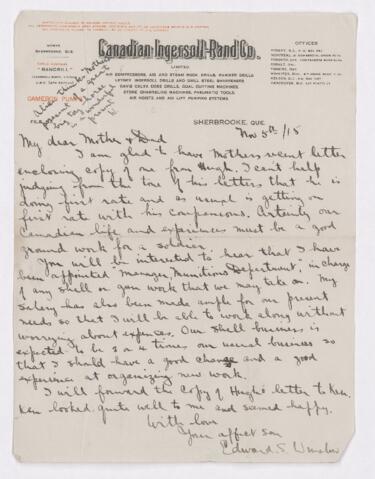 WORKS
SHERBROOKE, QUE
Canadian Ingersoll-Rand Co.
LIMITED
AIR COMPRESSORS, AIR AND STEAM ROCK DRILLS, HAMMER DRILLS
LEYNER INGERSOLL DRILLS AND DRILL STEEL SHARPENERS
DAVIS CALYX CORE DRILLS, COAL CUTTING MACHINES
STONE CHANNELING MACHINES, PNEUMATIC TOOLS
AIR HOISTS AND AIR LIFT PUMPING SYSTEMS
OFFICES
CAMERON PUMPS
"RANDRILL"
SHERBROOKE, QUE.
Alice thanks Mother
for
Nov 5th/15
My dear Mother & Dad
I am glad to have Mothers recent letter
enclosing copy of one from Hugh. I cant help
judging from the tone of his letters that he is
doing first rate and as usual is getting on
first rate with his companions. Certainly our
Canadian life and experiences must be a good
ground work for a soldier.
You will be interested to hear that I have
been appointed "Manager Munitions Department", in charge
of any shell or gun work that we may take on. My
salary has also been made ample for our present
needs so that I will be able to work along without
worrying about expenses. Our shell business is
expected to be 3 or 4 times our usual business so
that I should have a good chance and a good
experience at organizing new work.
I will forward the copy of Hughs letter to Ken.
Ken looked quite well to me and seemed happy.
With love
Your affect son
Edward S. Winslow